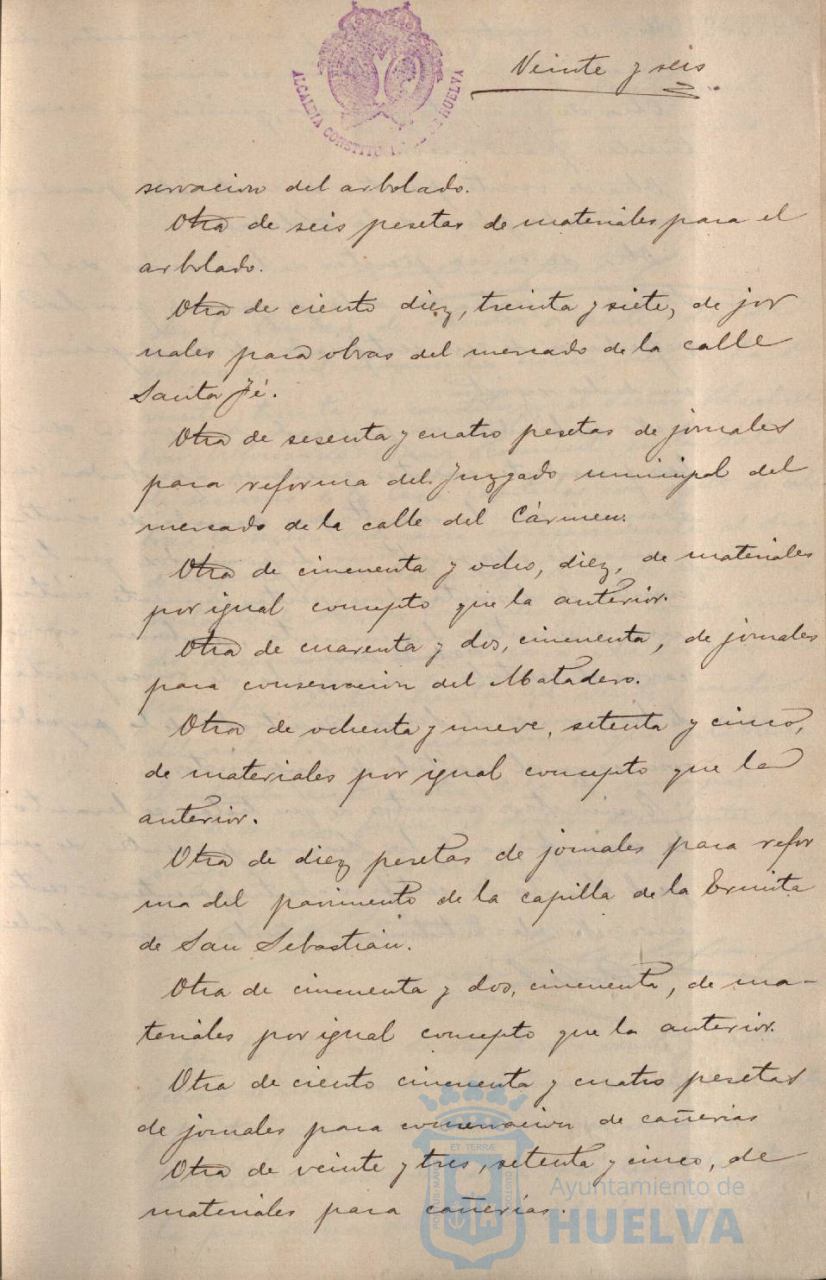 Veinte y seis
ALCALDIA CONSTITUCIONAL DE HUELVA
servacion del arbolado.
Otra de seis pesetas de materiales para el
arbolado.
Otra de ciento diez, treinta y siete, de jor
nales para obras del mercado de la calle
Santa Fé.
Otra de sesenta y cuatro pesetas de jornales
para reforma del Juzgado municipal del
mercado de la calle del Cármen.
Otra de cincuenta y ocho, diez, de materiales
por igual concepto que la anterior.
Otra de cuarenta y dos, cincuenta, de jornales
para conservacion del Matadero.
Otra de ochenta y nueve, setenta y cinco,
de materiales por igual concepto que la
anterior.
Otra de diez pesetas de jornales para refor
ma del pavimento de la capilla de la Ermita
de San Sebastián.
Otra de cincuenta y dos, cincuenta, de ma-
teriales por igual concepto que la anterior.
Otra de ciento cincuenta y cuatro pesetas
de jornales para conservacion de cañerias
Otra de veinte y tres, setenta y cinco, de
materiales para cañerías.
ET TERRÆ
Ayuntamiento de
HUELVA